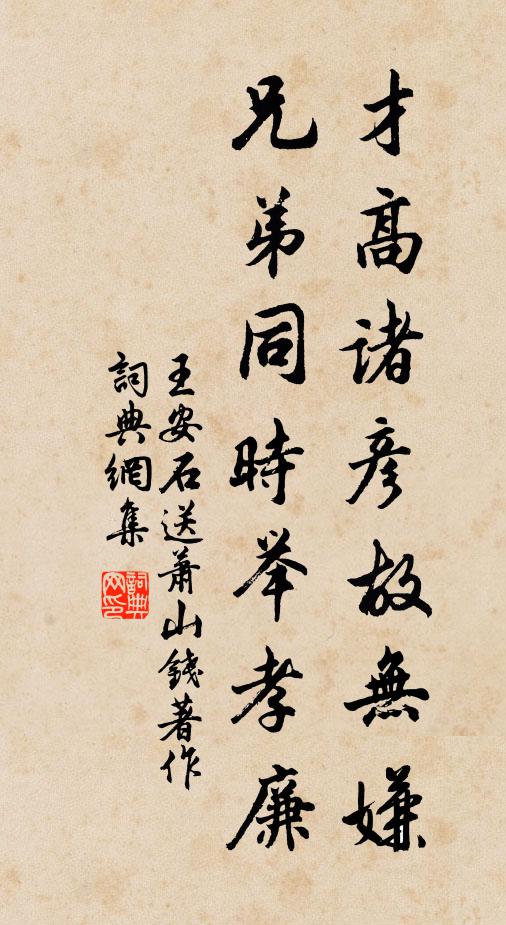 才高諸彦故無嫌
兄弟同時举孝廉
王安石送萧山錢著作
詞典網集
詞典网印